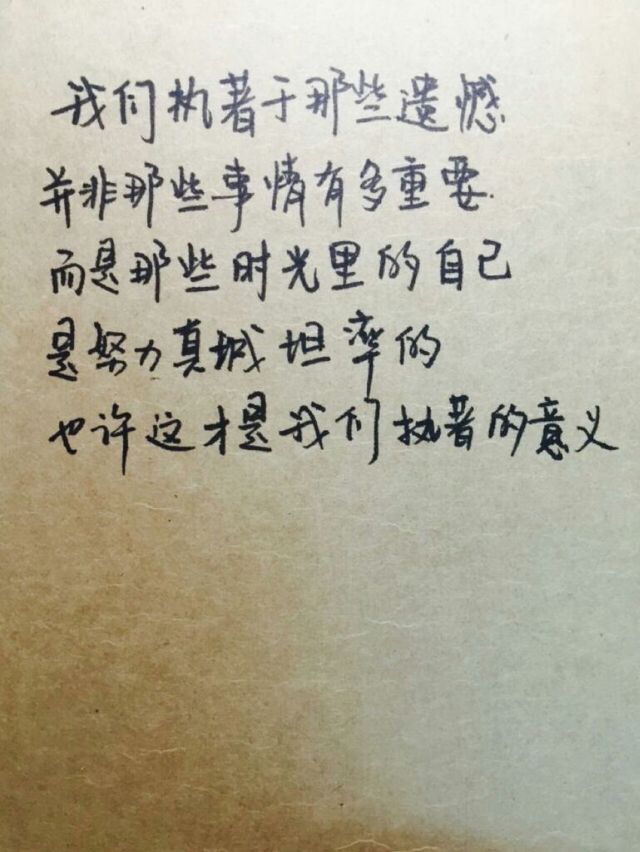 我们执著于那些遗憾
并非那些事情有多重要
而是那些时光里的自己
是努力真诚坦率的
也许这才是我们执著的意义